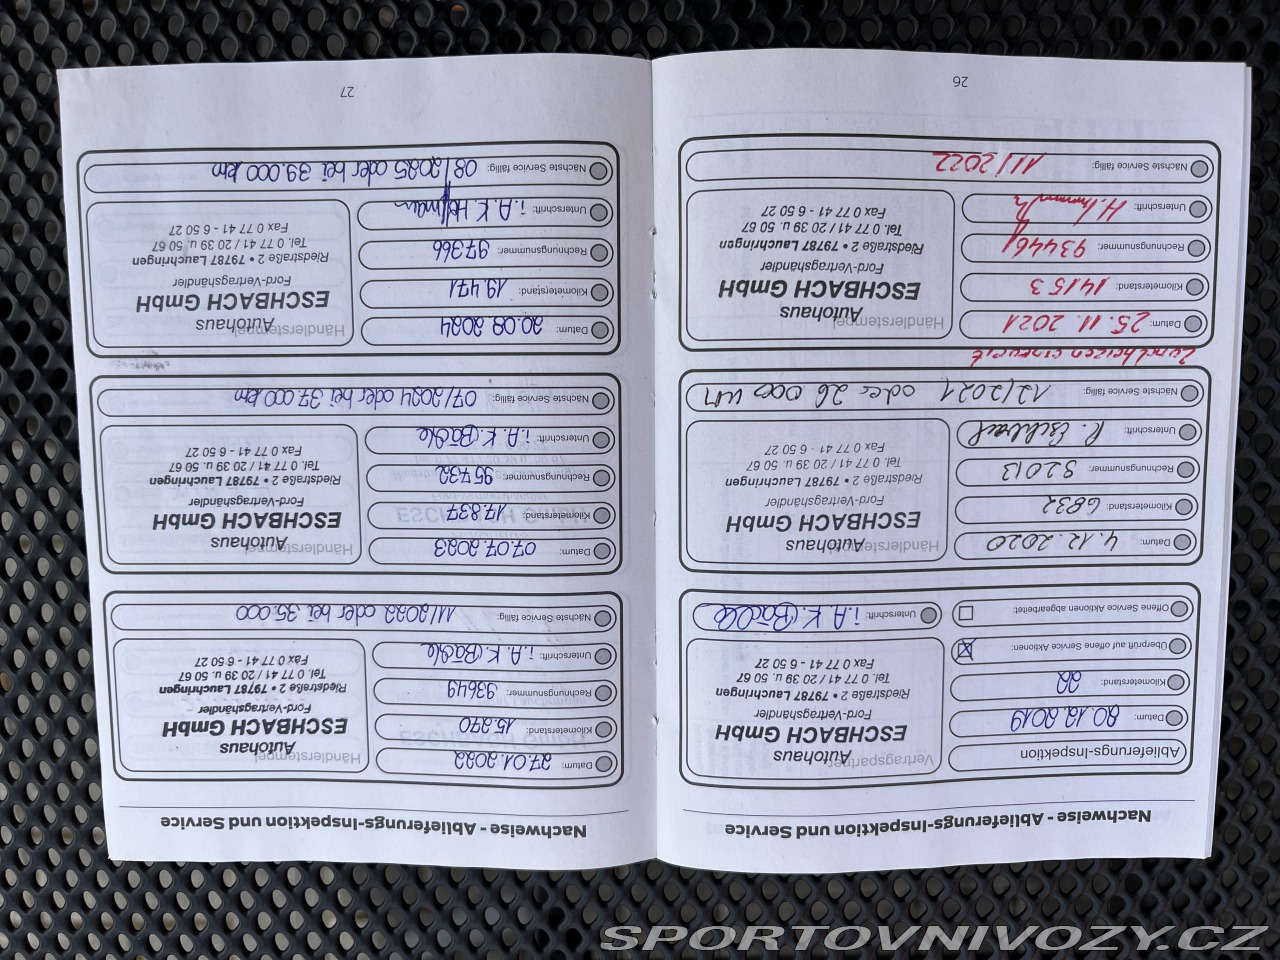 Nachweise - Ablieferungs-Inspektion und Service
Ablieferungs-Inspektion
Datum: 20.12.2019
Kilometerstand: 22
Überprüft auf offene Service Aktionen: X
Offene Service Aktionen abgearbeitet:
Unterschrift: i.A. K. Bächle
Vertragspartner
Autohaus
ESCHBACH GmbH
Ford-Vertragshändler
Riedstraße 2 • 79787 Lauchringen
Tel. 0 77 41 / 20 39 u. 50 67
Fax 0 77 41 - 6 50 27
Datum: 4.12.2020
Kilometerstand: 6832
Rechnungsnummer: 92013
Unterschrift: R. Eschbach
Nächste Service fällig: 12/2021 oder 26 000 km
Händlerstempel
Autohaus
ESCHBACH GmbH
Ford-Vertragshändler
Riedstraße 2 • 79787 Lauchringen
Tel. 0 77 41 / 20 39 u. 50 67
Fax 0 77 41 - 6 50 27
Zündkerzen erneuert
Datum: 25.11.2021
Kilometerstand: 14153
Rechnungsnummer: 93446
Unterschrift:
Nächste Service fällig: 11/2022
Händlerstempel
Autohaus
ESCHBACH GmbH
Ford-Vertragshändler
Riedstraße 2 • 79787 Lauchringen
Tel. 0 77 41 / 20 39 u. 50 67
Fax 0 77 41 - 6 50 27
26
Nachweise - Ablieferungs-Inspektion und Service
Datum: 27.01.2022
Kilometerstand: 15.270
Rechnungsnummer: 93649
Unterschrift: i.A. K. Bächle
Nächste Service fällig: 11/2022 oder bei 35.000
Händlerstempel
Autohaus
ESCHBACH GmbH
Ford-Vertragshändler
Riedstraße 2 • 79787 Lauchringen
Tel. 0 77 41 / 20 39 u. 50 67
Fax 0 77 41 - 6 50 27
Datum: 07.07.2023
Kilometerstand: 17.837
Rechnungsnummer: 95732
Unterschrift: i.A. K. Bächle
Nächste Service fällig: 07/2024 oder bei 37.000 km
Händlerstempel
Autohaus
ESCHBACH GmbH
Ford-Vertragshändler
Riedstraße 2 • 79787 Lauchringen
Tel. 0 77 41 / 20 39 u. 50 67
Fax 0 77 41 - 6 50 27
Datum: 20.08.2024
Kilometerstand: 19.471
Rechnungsnummer: 97366
Unterschrift: i.A. K. Hoffmann
Nächste Service fällig: 08/2025 oder bei 39.000 km
Händlerstempel
Autohaus
ESCHBACH GmbH
Ford-Vertragshändler
Riedstraße 2 • 79787 Lauchringen
Tel. 0 77 41 / 20 39 u. 50 67
Fax 0 77 41 - 6 50 27
27
SPORTOVNIVOZY.CZ